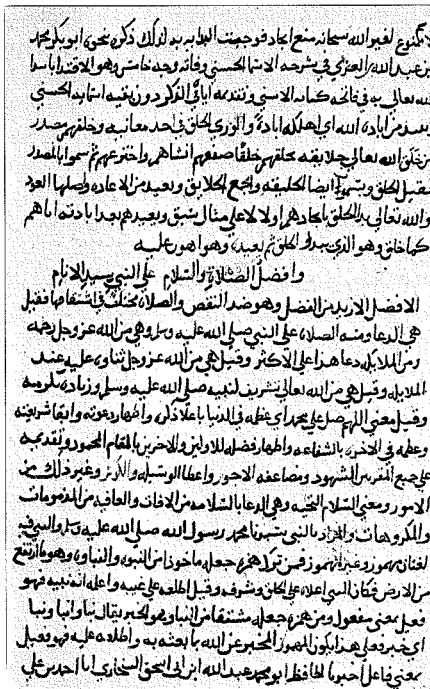 لغير الله سبحانه منع ايجاد فوجبت البداية به لذلك ذكره نحوى ابو بكر محمد
بن عبد الله العزى في شرحه الاسما الحسنى وفائه وجه خامس وهو الاقتدا باسما
الله تعالى به في فاتحة كتابه الاسنى وتقديمه اياه في الذكر دون بقية اسمايه الحسنى
ويعيد من اباده الله اى اهلكه ابادة والورى الخلق في احد معانيه وخلقهم مصدر
من خلق الله تعالى خلايقه يخلقهم خلقا صنعهم انشاهم واخترعهم ثم سموا بالمصدر
فقيل الخلق ويسمون ايضا الخليقة والجمع الخلايق ويعيد من الاعادة واصلها العود
والله تعالى بدا الخلق بايجادهم اولا لا على مثال سبق ويعيدهم بعد ابادته اياهم
كما خلق وهو الذي يبدؤ الخلق ثم يعيده وهو اهون عليه
وافضل الصلاة والسلام على النبي سيد الانام
الافضل الازيد من الفضل وهو ضد النقص والصلاة مختلف في اشتقاقها فقيل
هي الدعا ومنه الصلاة على النبي صلى الله عليه وسلم وهي من الله عز وجل رحمة
ومن الملايكة دعا هذا على الاكثر وقيل هي من الله عز وجل ثناؤه عليه عند
الملايكة وقيل هي من الله تعالى تشريف لنبيه صلى الله عليه وسلم وزيادة تكرمة
وقيل معنى اللهم صل على محمد اى عظمه في الدنيا باعلا ذكره واظهار دعوته وابقا شريعته
وعظمه في الاخرة بالشفاعة واظهار فضله للاولين والاخرين بالمقام المحمود وتقديمه
على جميع المقربين الشهود ومضاعفة الاجور واعطا الوسيلة والكوثر وغير ذلك من
الامور ومعنى السلام التحية وهي الدعا بالسلامة من الافات والعافية من المذمومات
والمكروهات والمراد بالنبي سيدنا محمد رسول الله صلى الله عليه وسلم والنبي فيه
لغتان مهموز وغير مهموز فمن ترك همزه جعله ماخوذا من النبوة والنباوة وهو ما ارتفع
من الارض فكان النبي اعلاه على الخلق وشرفه وقيل اطلعه على غيبه واعلمه انه نبيه فهو
فعيل بمعنى مفعول ومن همزه جعله مشتقا من النبا وهو الخبر يقال نبا وانبا ونبا
اى خبر فعلى هذا يكون المهموز المخبر عن الله ما بعثه به واطلعه عليه فهو فعيل
بمعنى فاعل اخبرنا الحافظ ابو محمد عبد الله ابراهيم بن اسحق السخاري انا احمد بن على